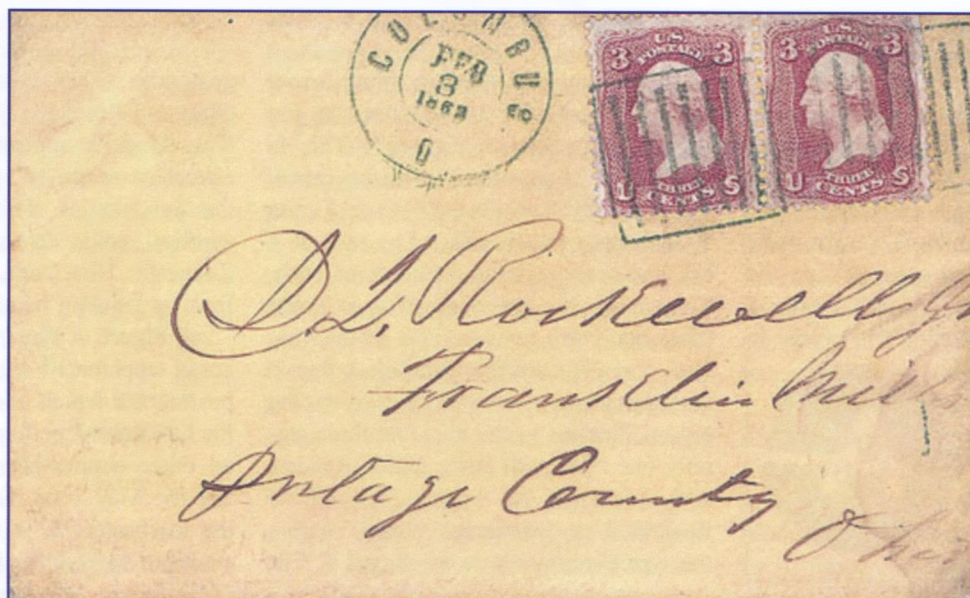 COLUMBUS
FEB
3
1863
O
3 U.S. POSTAGE 3
THREE CENTS
U S
3 U.S. POSTAGE 3
THREE CENTS
U S
D. L. Rockwell Jr
Franklin Mills
Portage County
Ohio